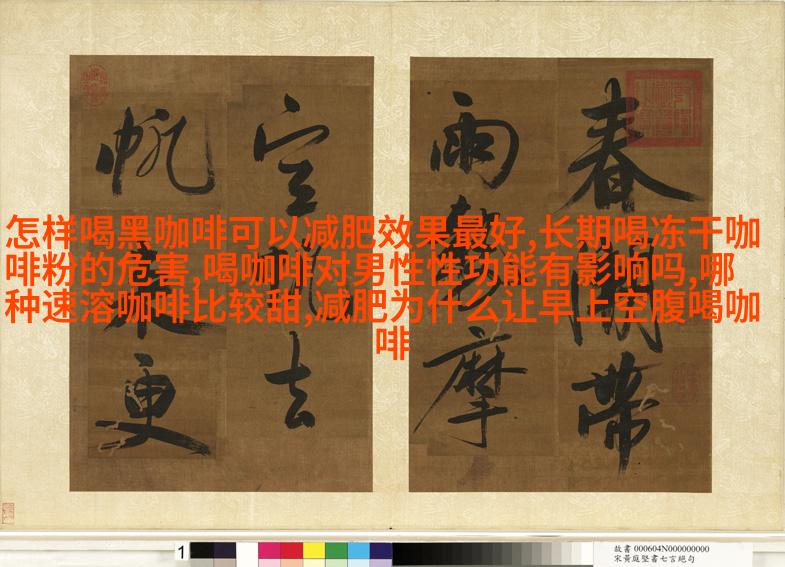 怎样喝黑咖啡可以减肥效果最好,长期喝冻干咖
啡粉的危害,喝咖啡对男性性功能有影响吗,哪
种速溶咖啡比较甜,减肥为什么让早上空腹喝咖
啡
春瀾帶
雨勢摩
空帆去
帆來更
1
故書 000604N000000000
宋黃庭堅書七言絕句